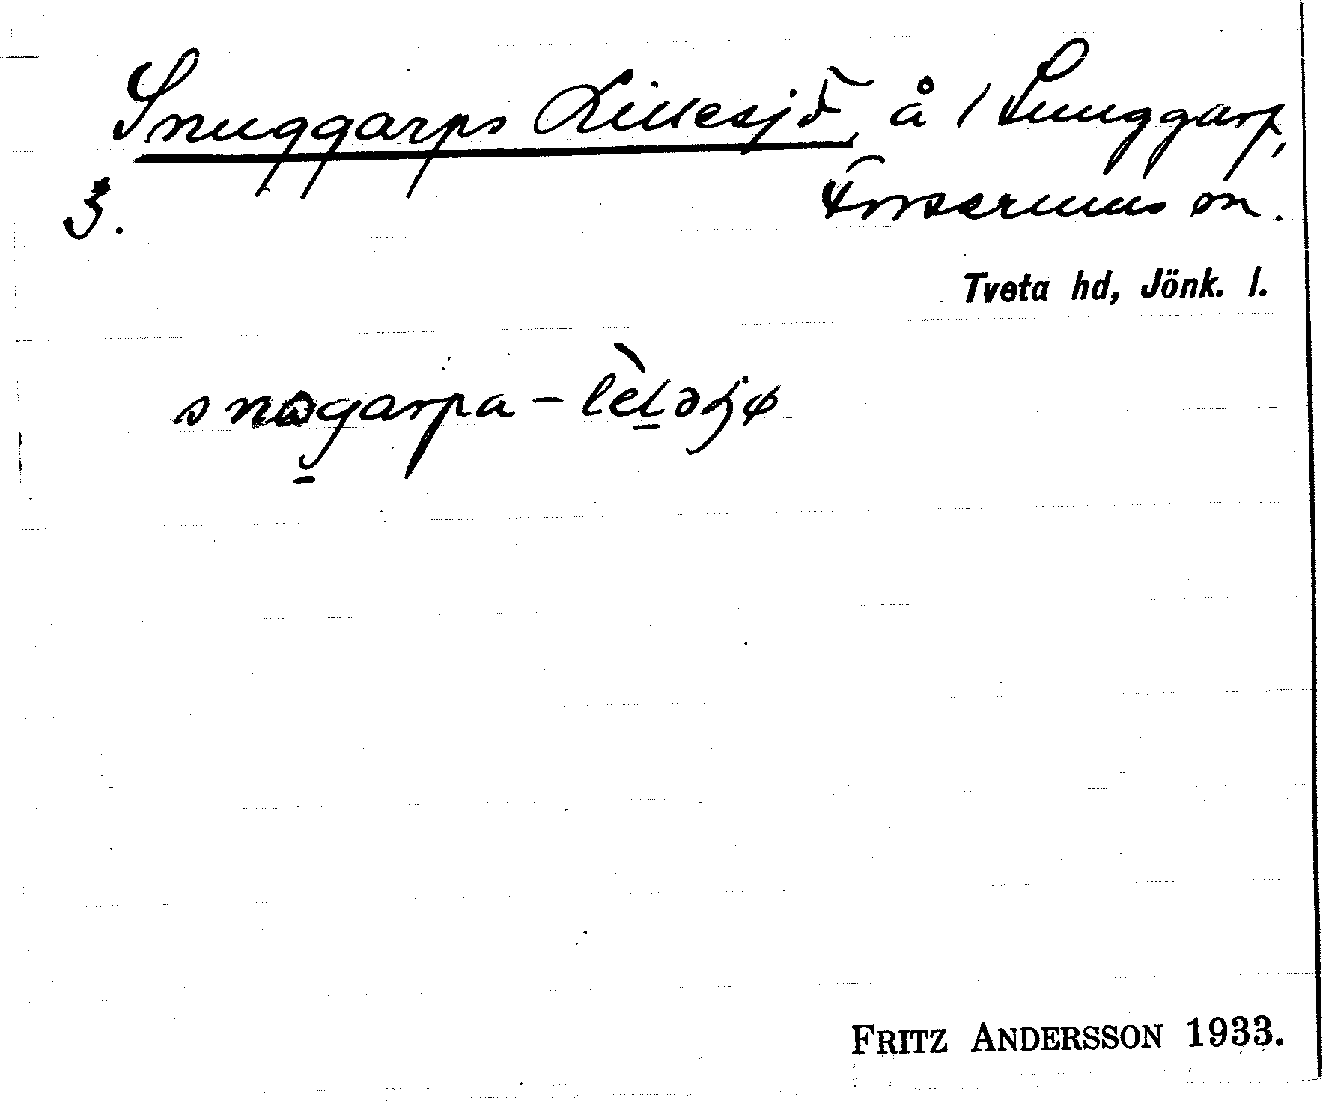 Snuggarps Lillesjö, å 1 Snuggarp,
3. Forserums sn.
Tveta hd, Jönk. l.
FRITZ ANDERSSON 1933.